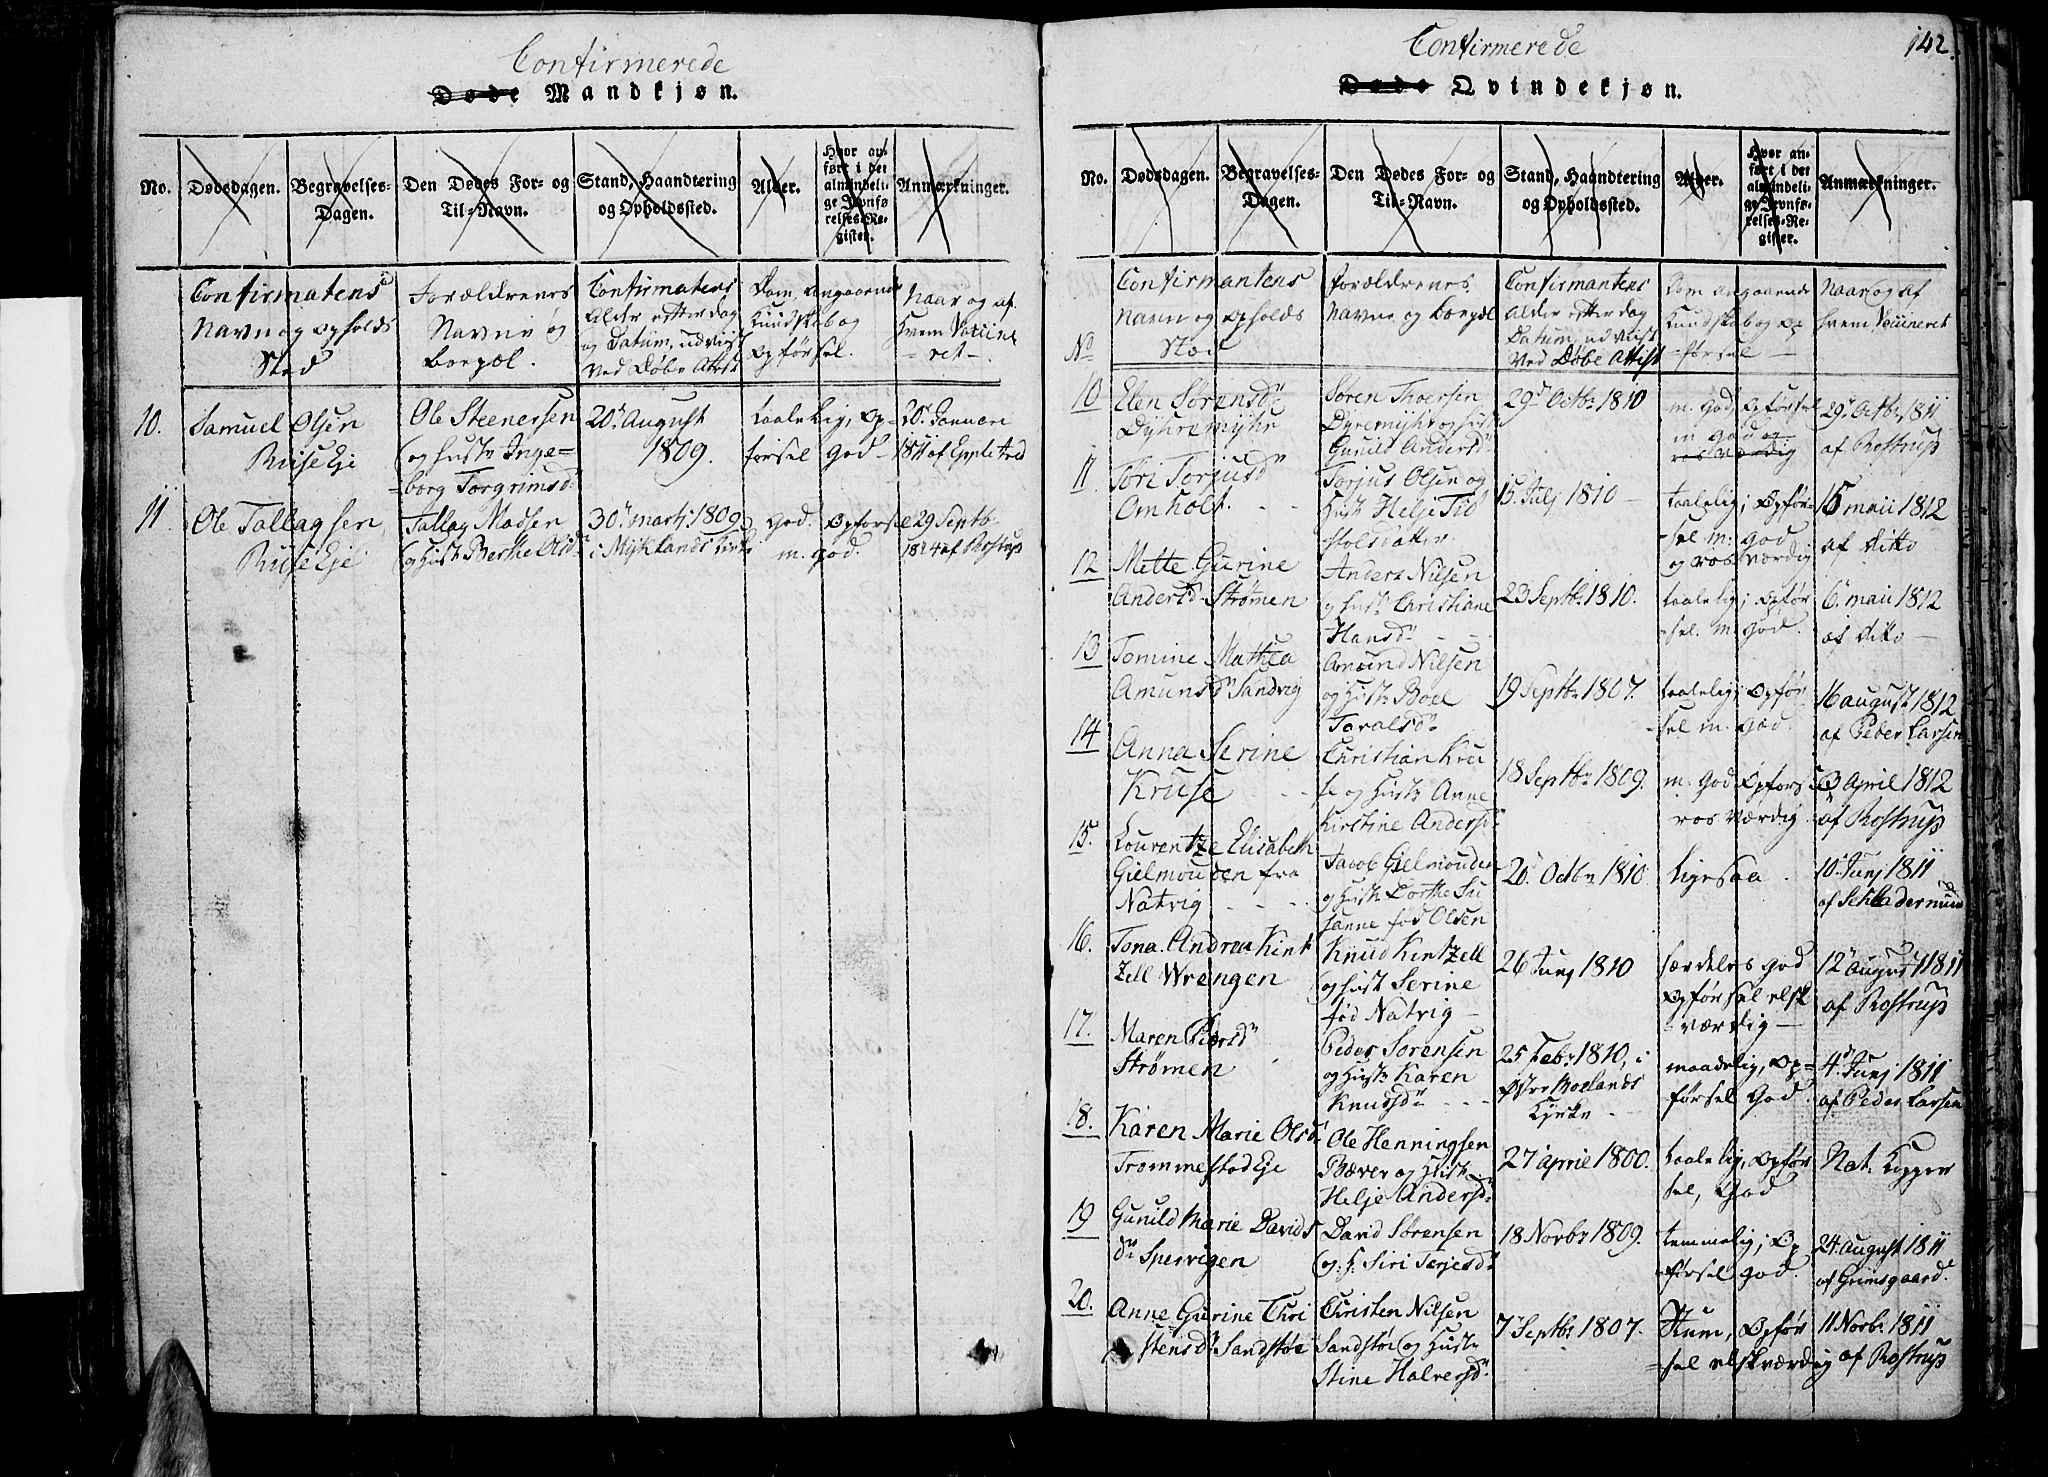 Confirmerede
Døde Mandkjøn.
No.
Dødsdagen.
Begravelses-
Dagen.
Den Dødes For- og
Til-Navn.
Stand, Haandtering
og Opholdssted.
Alder.
Hvor an-
ført i det
almindeli-
ge Jevnfø
relses-Re-
gister.
Anmærkninger.
Confirmatens
Navn og Opholds
Sted
Forældrenes
Navne og
boepæl.
Confirmatens
Alder efter dag
og Datum, udvist
ved Døbe Attest
Dom, angaaende
Kundskab og
Opførsel.
Naar og af
hvem Vaccine
- ret -
10.
Samuel Olsen
Riise Eje
Ole Steenersen
og hust: Inge=
=borg Torgrimsd:
20de August
1809.
taalelig, Op=
førsel God -
20de Januari
1811 af Eppletred
11.
Ole Tallagsen
Riise Eje
Tallag Madsen
og Hust: Berthe Olsd:
30te marts 1809
i Myklands Kirke
God. Opførsel
m. god.
29 Septb.
1814 af Rostrup
142.
Confirmerede
Døde Qvindekjøn.
No.
Dødsdagen.
Begravelses-
Dagen.
Den Dødes For- og
Til-Navn.
Stand, Haandtering
og Opholdssted.
Alder.
Hvor an-
ført i det
almindeli-
ge Jevnfø-
relses-Re-
gister.
Anmærkninger.
No
Confirmantens
Navn og Opholds
Sted
forældrenes
Navne og boepæl
Confirmantens
alder efter dag
Datum, udvist
ved Døbe Attest
Dom angaaende
Kundskab og Op
=førsel -
Naar og af
hvem Vaccineret
10
Elen Sørensd:
Dyhremyhr
Søren Thoersen
Dyremyhr og hust
Gunild Andersd:
29de Octbr 1810
m. God Opførsel
m god og
ros værdig
29de Octbr 1811
af Rostrup
11.
Tori Torjusd:
Omholt.
Torjus Olsen og
Hust Helje Tid
stolsdatter
15. Julj 1810 -
taalelig; Opfør-
-sel m: god
og ros værdig
16 maii 1812
af ditto
12
Mette Gurine
Andersd: Strømen
Anders Nilsen
og hust: Christiane
Hansd:
23 Septbr 1810.
taalelig; Opfør
-sel. m: God.
6te maii 1812
af ditto -
13
Tomine Mathea
Amunsd: Sandvig
Amund Nilsen
og Hust: Boel
Toralsd:
19 Septbr 1807.
taalelig; Opfør-
sel m. God.
16 august 1812
af Peder Larsen
14
Anna Serine
Kruse
Christian Kru
se og Hust: Anne
Kirstine Andersd:
18 Septbr 1809.
m. God Opførs
ros værdig
3 April 1812
af Rostrup
15.
Lourentze Elisabeth
Gielmouden fra
Natvig
Jacob Gielmouden
og Hust: Dorthe Su
sanne fød Olsen
20de Octbr 1810
ligesaa.
10de Junj 1811
16.
Tona. Andrea Kint
zell Wrengen
Knud Kintzell
og Hust Serine
fød Natvig -
26 Junj 1810
særdeles god
Opførsel elsk
=værdig -
12te August 1811
af Rostrup
17.
Maren Pedersd:
Strømen
Peder Sorensen
og Hust: Karen
Knudsd:
25 Febr 1810, i
Øster Moelands
Kirke -
maadelig, Op=
førsel God
4de Junj 1811
af Peder Larsen
18.
Karen Marie Olsd:
Trommestad Eje
Ole Henningsen
Bæver og Hust:
Helje Andersd:
27 April 1800.
taalelig, Opfør
sel, God
Nat. Kopper
19
Gunild Marie Davids
d: Spervigen
David Sørensen
og H: Siri Terjesd:
18 Novbr 1809.
temmelig; Op
=førsel god.
24. august 1811
af Grimsgaard.
20.
Anne Gurine Chri
stensd: Sandstøe
Christen Nilsen
Sandstøe og Hust:
Stine Halversd:
7de Septbr 1807.
Stum, Opfør
=sel elskværdig
11 Novbr 1811
af Rostrup